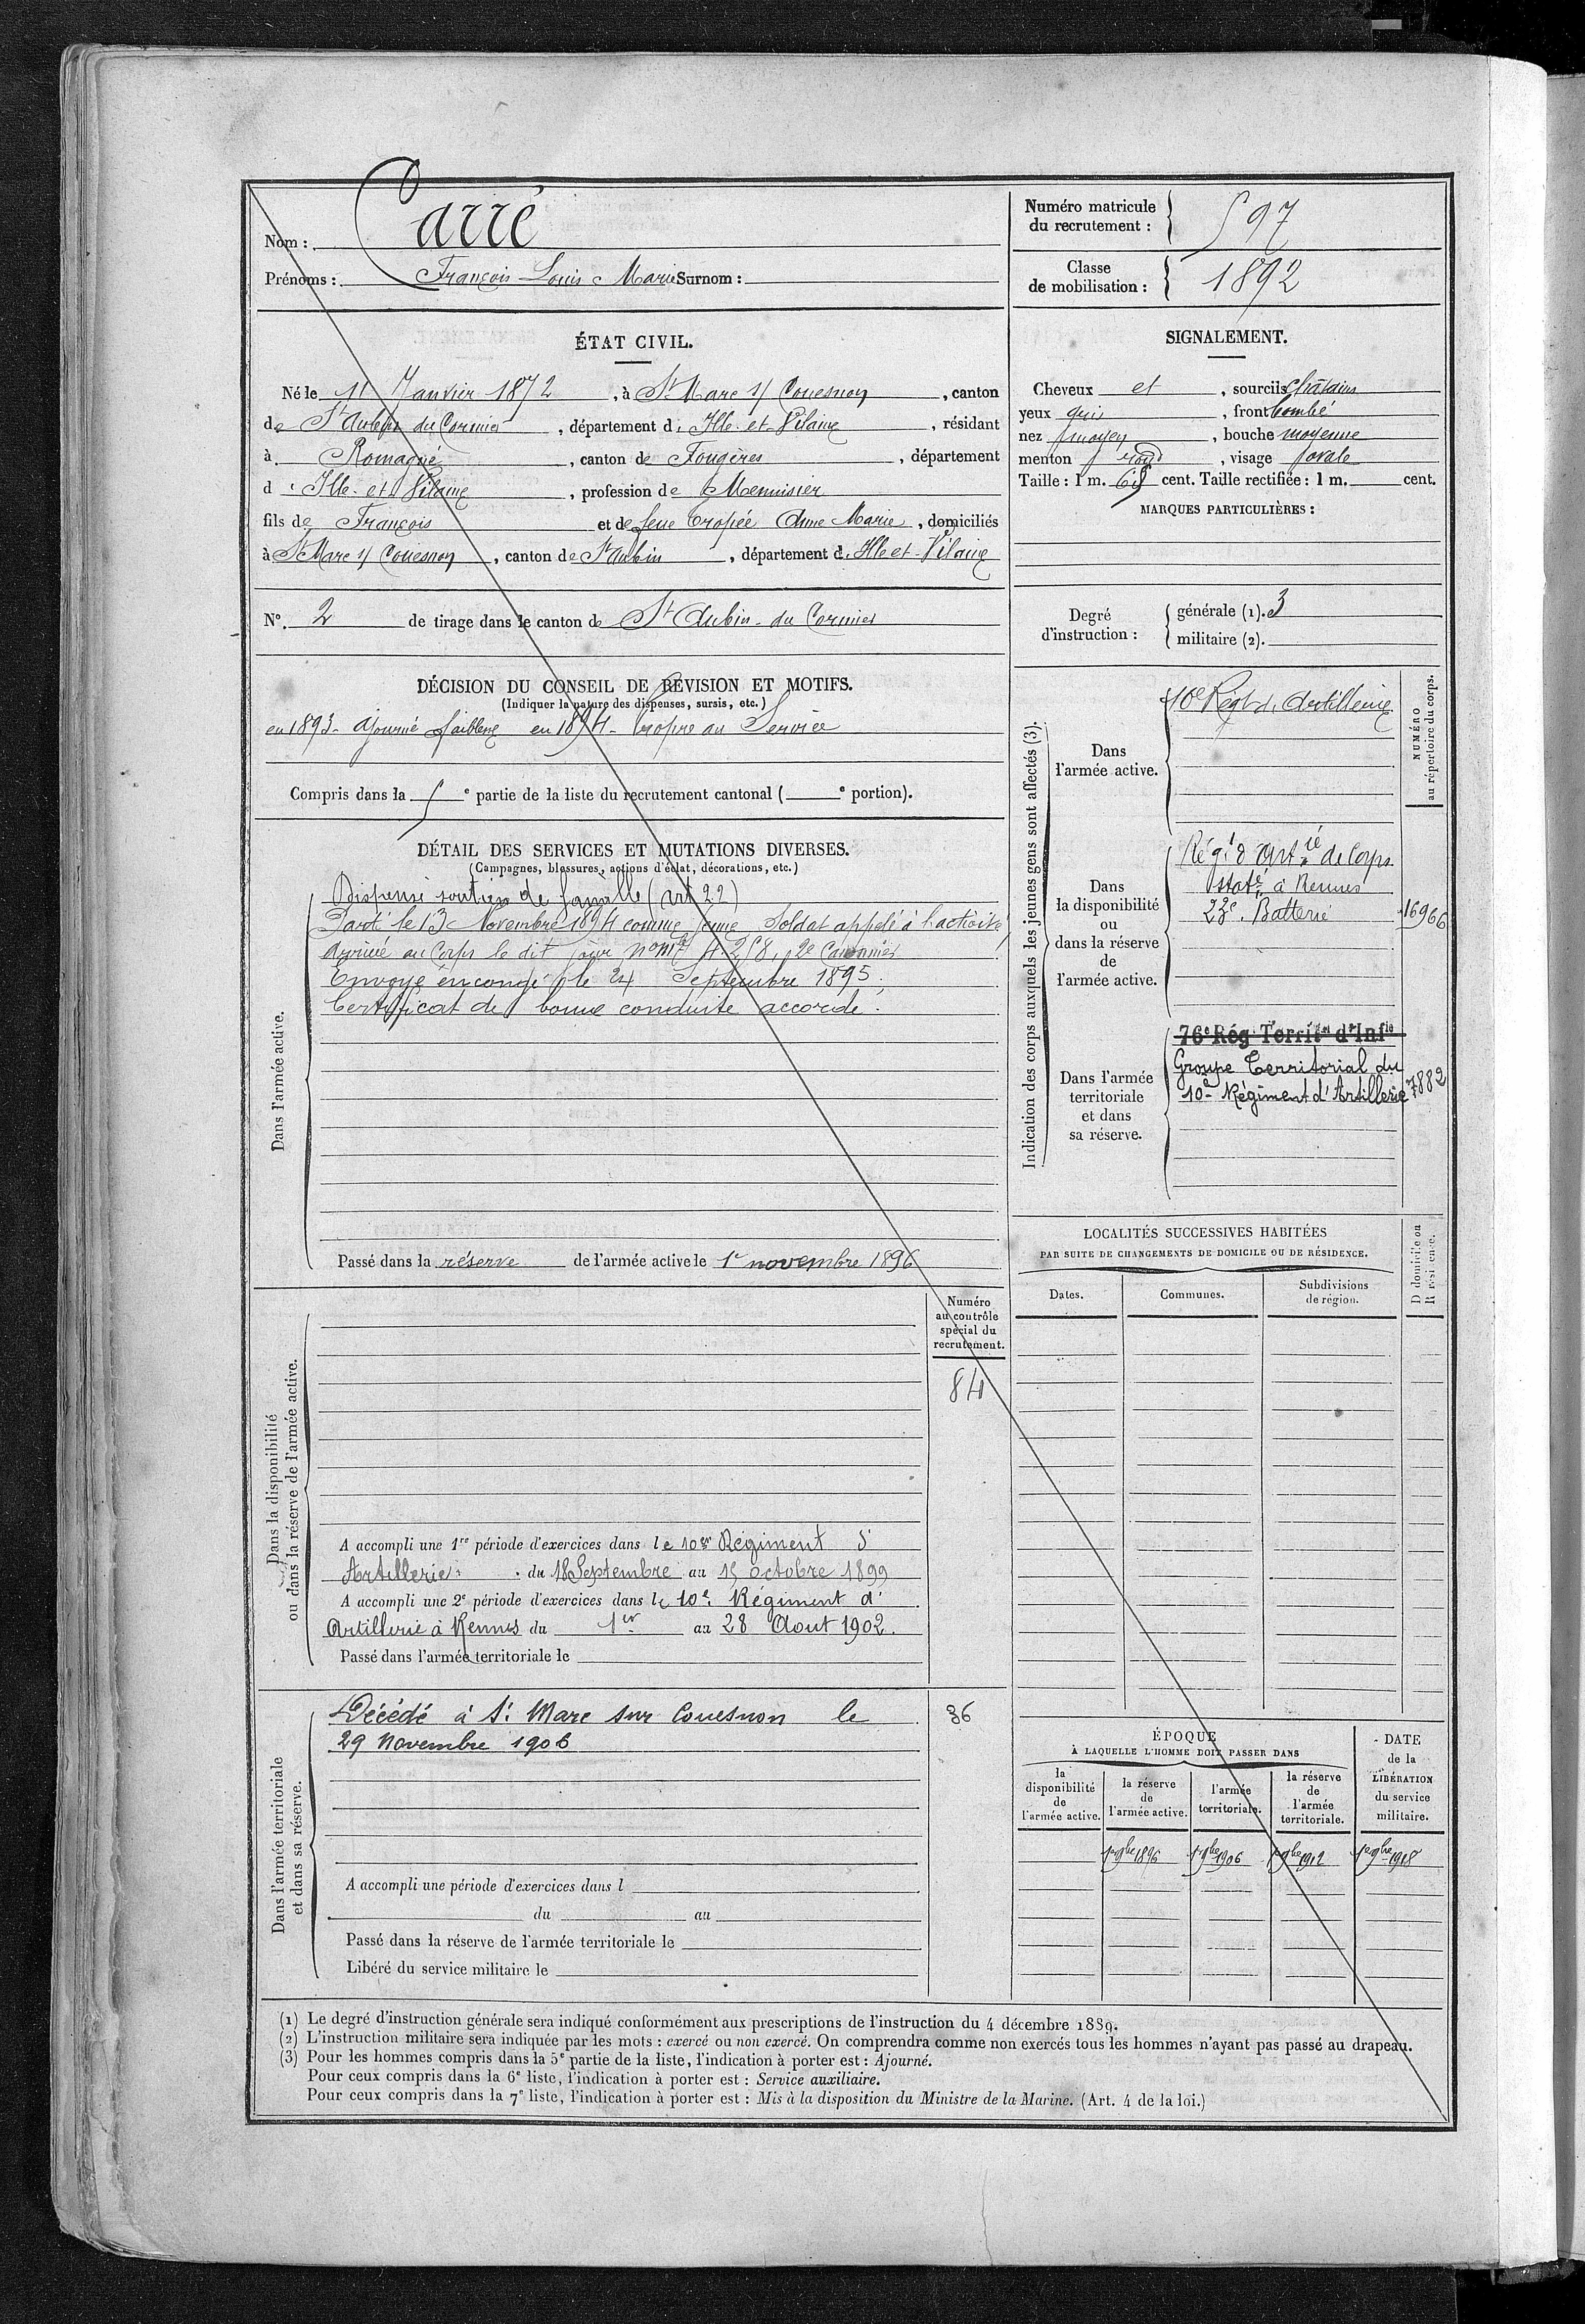 Nom : Carré
Prénoms : François Louis Marie Surnom :
Numéro matricule
du recrutement : 597
Classe
de mobilisation : 1892
ÉTAT CIVIL.
Né le 11 Janvier 1872, à St Marc s/ Couesnon, canton
de St Aubin du Cormier, département d'Ille-et-Vilaine, résidant
à Romagné, canton de Fougères, département
d'Ille-et-Vilaine, profession de Menuisier
fils de François et de feue Tropée Anne Marie, domiciliés
à St Marc s/ Couesnon, canton de St Aubin, département d'Ille et-Vilaine
N° 2 de tirage dans le canton de St Aubin-du Cormier
DÉCISION DU CONSEIL DE RÉVISION ET MOTIFS.
(Indiquer la nature des dispenses, sursis, etc.)
en 1893- ajourné faiblesse en 1894- Propre au Service
Compris dans la 5e partie de la liste du recrutement cantonal ( e portion).
DÉTAIL DES SERVICES ET MUTATIONS DIVERSES.
(Campagnes, blessures, actions d'éclat, décorations, etc.)
Dans l'armée active.
Dispensé soutien de famille (art 22)
Parti le 13 Novembre 1894 comme jeune Soldat appelé à l'activité
Arrivé au Corps le dit jour n° mle 4258, 2e Canonnier
Envoyé en congé le 24 Septembre 1895,
Certificat de bonne conduite accordé.
Passé dans la réserve de l'armée active le 1er novembre 1896
Dans la disponibilité
ou dans la réserve de l'armée active.
Numéro
au contrôle
spécial du
recrutement.
84
A accompli une 1re période d'exercices dans le 10e Régiment d'
Artillerie du 18 Septembre au 15 octobre 1899
A accompli une 2e période d'exercices dans le 10e Régiment d'
Artillerie à Rennes du 1er au 28 Aout 1902.
Passé dans l'armée territoriale le
Dans l'armée territoriale
et dans sa réserve.
Décédé à St Marc sur Couesnon le 36
29 Novembre 1906
A accompli une période d'exercices dans l
du au
Passé dans la réserve de l'armée territoriale le
Libéré du service militaire le
SIGNALEMENT.
Cheveux et, sourcils châtains
yeux gris, front bombé
nez moyen, bouche moyenne
menton rond, visage ovale
Taille : 1 m. 65 cent. Taille rectifiée : 1 m. cent.
MARQUES PARTICULIÈRES :
Degré
d'instruction :
générale (1). 3
militaire (2).
Indication des corps auxquels les jeunes gens sont affectés (3).
NUMÉRO
au répertoire du corps.
Dans
l'armée active.
10e Régt d'Artillerie
Dans
la disponibilité
ou
dans la réserve
de
l'armée active.
Régt d'Artie de Corps
staté à Rennes
23e Batterie 16966
Dans l'armée
territoriale
et dans
sa réserve.
76e Rég Territal d'Infie
Groupe Territorial du
10e Régiment d'Artillerie 7882
LOCALITÉS SUCCESSIVES HABITÉES
PAR SUITE DE CHANGEMENTS DE DOMICILE OU DE RÉSIDENCE.
Dates. Communes. Subdivisions
de région.
D domicile ou
R résidence.
ÉPOQUE
À LAQUELLE L'HOMME DOIT PASSER DANS
la
disponibilité
de
l'armée active.
la réserve
de
l'armée active.
l'armée
territoriale.
la réserve
de
l'armée
territoriale.
DATE
de la
LIBÉRATION
du service
militaire.
1er 9bre 1896 1er 9bre 1906 1er 9bre 1912 1er 9bre 1918
(1) Le degré d'instruction générale sera indiqué conformément aux prescriptions de l'instruction du 4 décembre 1889.
(2) L'instruction militaire sera indiquée par les mots : exercé ou non exercé. On comprendra comme non exercés tous les hommes n'ayant pas passé au drapeau.
(3) Pour les hommes compris dans la 5e partie de la liste, l'indication à porter est : Ajourné.
Pour ceux compris dans la 6e liste, l'indication à porter est : Service auxiliaire.
Pour ceux compris dans la 7e liste, l'indication à porter est : Mis à la disposition du Ministre de la Marine. (Art. 4 de la loi.)